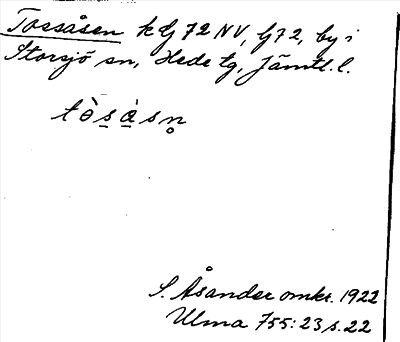 Tossåsen k Lj 72 NV, Lj 72, by i
Storsjö sn, Hede tg, Jämtl. l.
tòs̲à̲sn̥
S. Åsander omkr. 1922
Ulma 755:23 s. 22